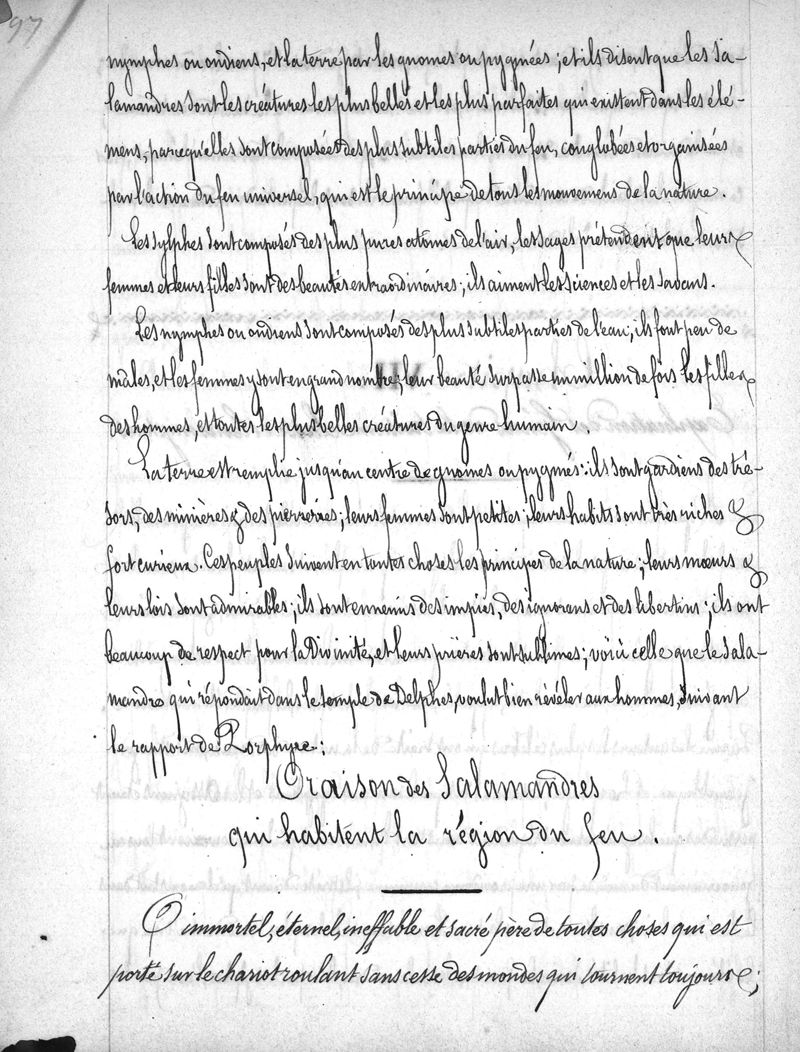 97
nymphes ou ondiens, et la terre par les gnomes ou pygmées ; et ils disent que les sa-
lamandres sont les créatures les plus belles et les plus parfaites qui existent dans les élé-
mens, parcequ'elles sont composées des plus subtiles parties du feu, conglobées et organisées
par l'action du feu universel, qui est le principe de tous les mouvemens de la nature.
Les sylphes sont composés des plus pures atômes de l'air, les sages prétendent que leurs
femmes et leurs filles sont des beautés extraordinaires ; ils aiment les sciences et les savans.
Les nymphes ou ondiens sont composés des plus subtiles parties de l'eau ; ils font peu de
mâles, et les femmes y sont en grand nombre ; leur beauté surpasse un million de fois les filles
des hommes, et toutes les plus belles créatures du genre humain.
La terre est remplie jusqu'au centre de gnomes ou pygmés : ils sont gardiens des tré-
sors, des minières & des pierreries ; leurs femmes sont petites ; leurs habits sont très riches &
fort curieux. Ces peuples suivent en toutes choses les principes de la nature ; leurs mœurs &
leurs lois sont admirables ; ils sont ennemis des impies, des ignorans et des libertins ; ils ont
beaucoup de respect pour la Divinité, et leurs prières sont sublimes ; voici celle que le Sala-
mandre qui répondait dans le temple de Delphes, voulut bien révéler aux hommes, suivant
le rapport de Porphyre :
Oraison des Salamandres
qui habitent la région du feu.
O immortel, éternel, ineffable et sacré père de toutes choses qui est
porté sur le chariot roulant sans cesse des mondes qui tournent toujours ;